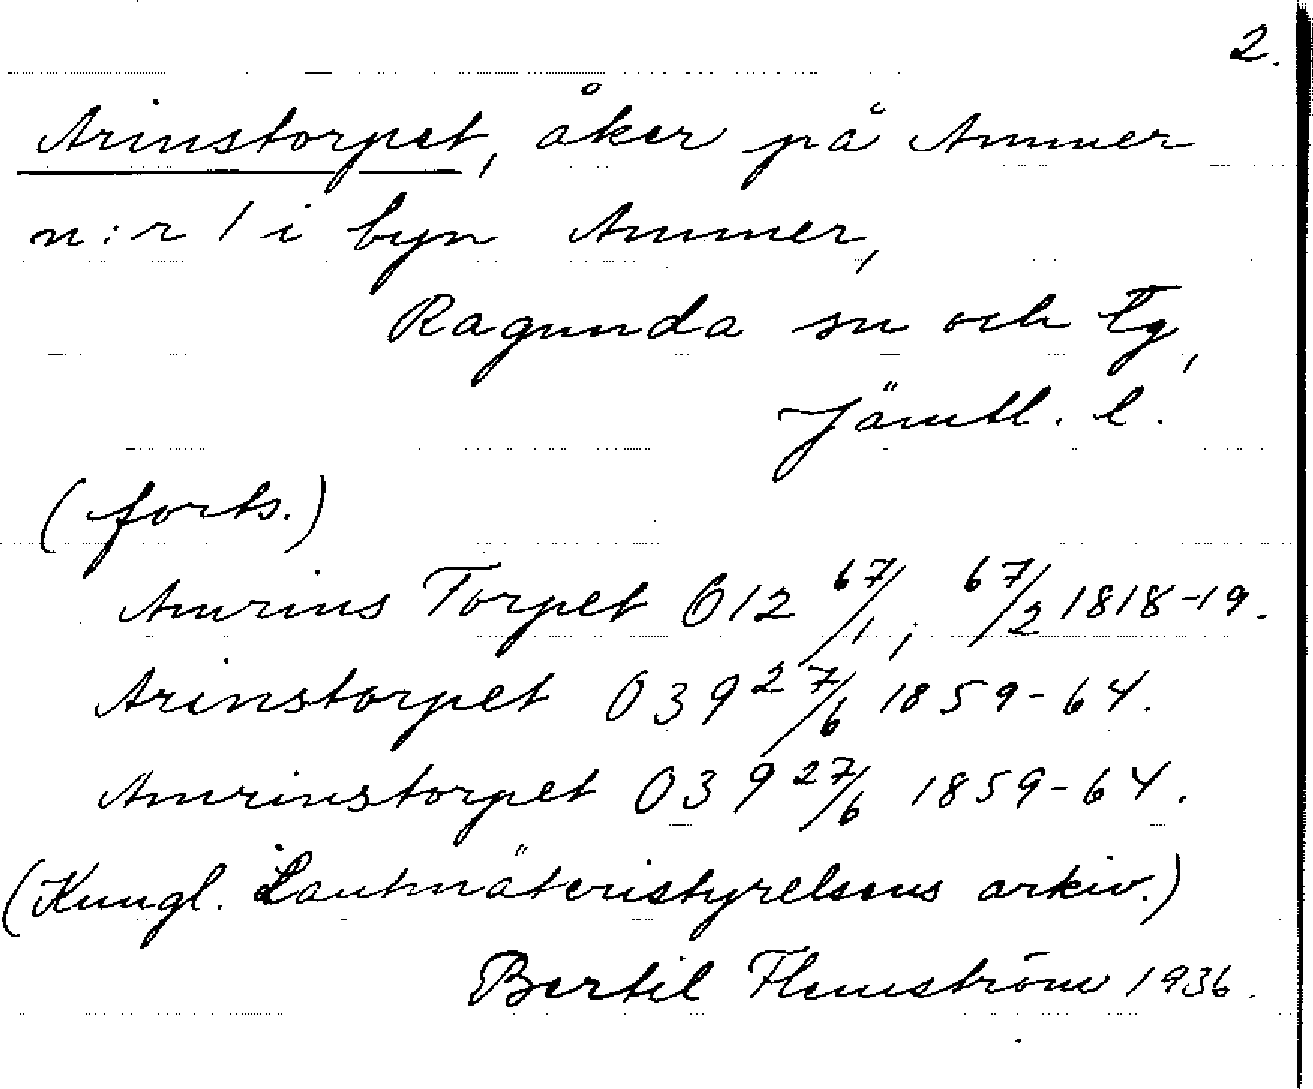 2.
Arinstorpet, åker på Ammer
n:r 1 i byn Ammer,
Ragunda sn och tg,
Jämtl. l.
(forts.)
Amrins Torpet 012 67/1, 67/2 1818-19.
Arinstorpet 039 27/6 1859-64.
Amrinstorpet 039 27/6 1859-64.
(Kungl. Lantmäteristyrelsens arkiv.)
Bertil Flemström 1936.